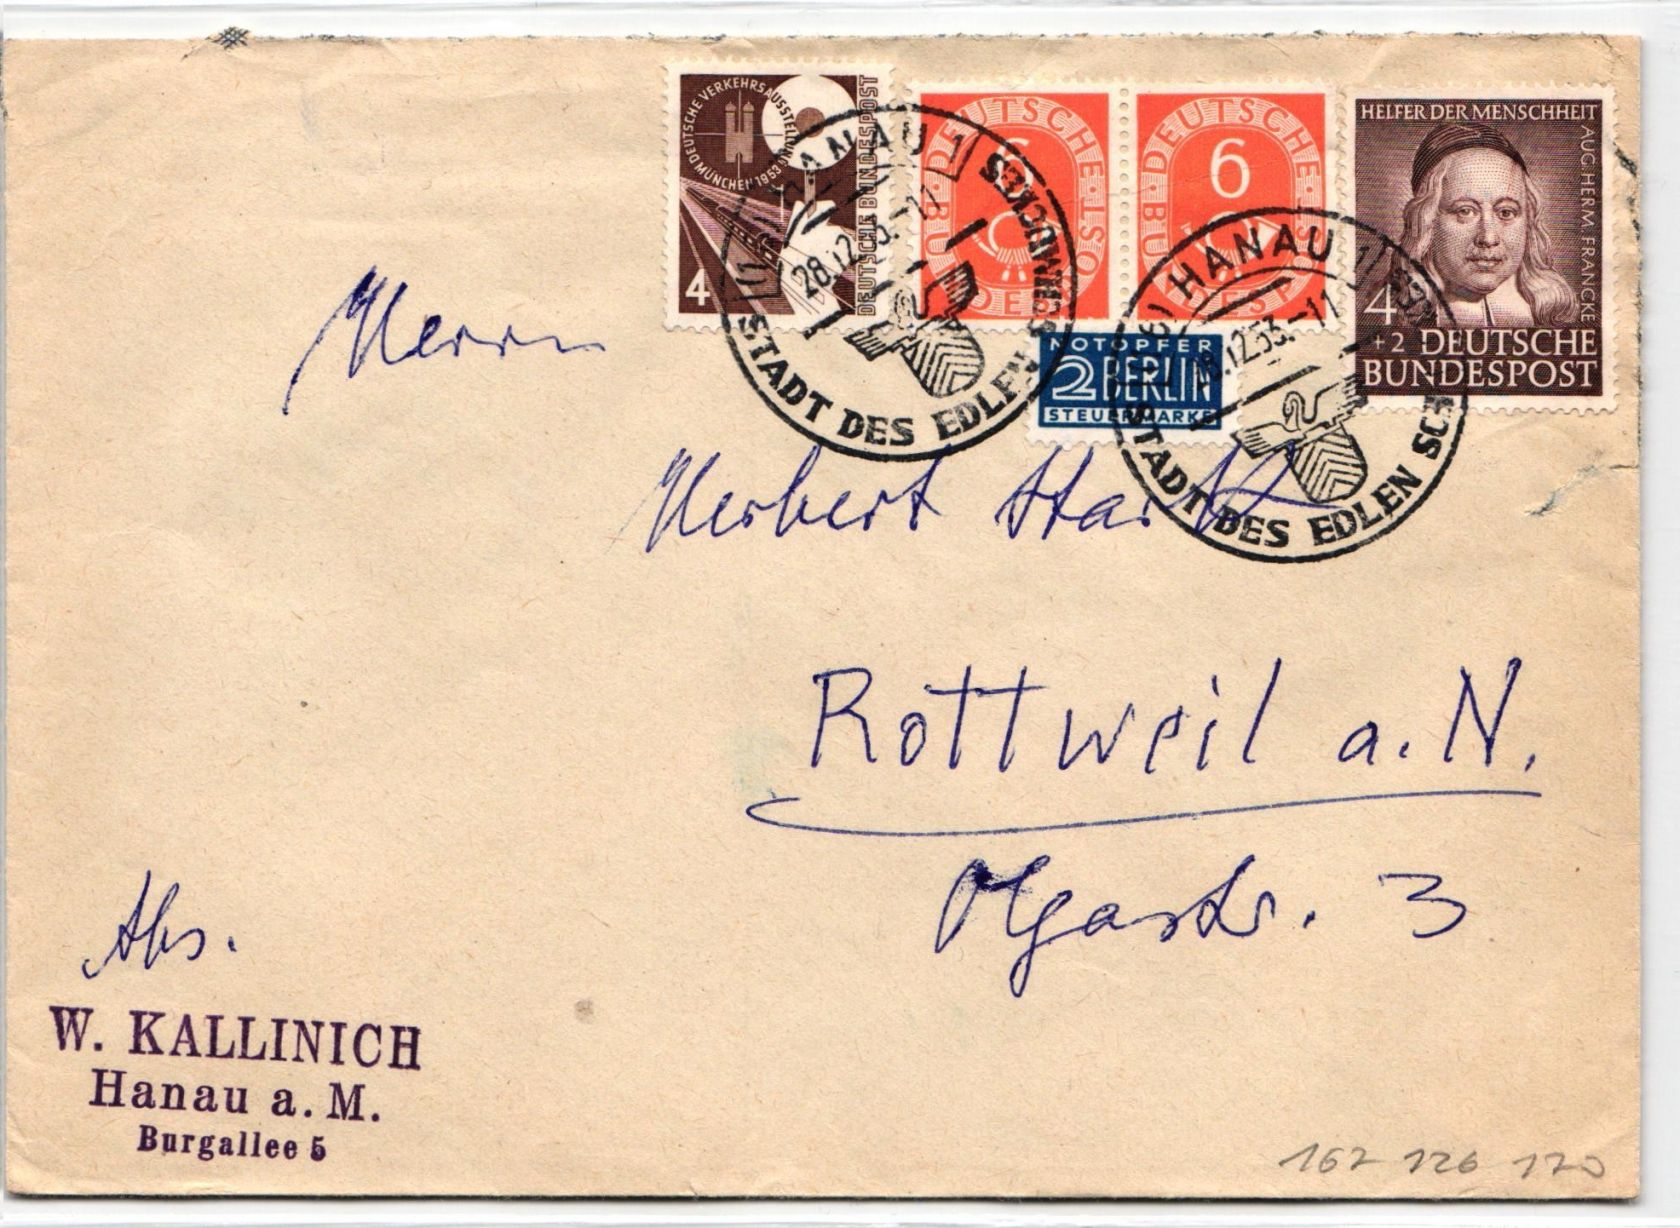 DEUTSCHE VERKEHRSAUSSTELLUNG
MÜNCHEN 1953
DEUTSCHE BUNDESPOST
4
DEUTSCHE BUNDESPOST
6
DEUTSCHE BUNDESPOST
6
HELFER DER MENSCHHEIT
AUG. HERM. FRANCKE
4
+2 DEUTSCHE
BUNDESPOST
NOTOPFER
2 BERLIN
STEUERMARKE
(16) HANAU 1
28.12.53.-11
STADT DES EDLEN SCHMUCKES
(16) HANAU 1
28.12.53.-11
STADT DES EDLEN SCHMUCKES
Herrn
Herbert Stark
Rottweil a. N.
Olgastr. 3
Abs.
W. KALLINICH
Hanau a. M.
Burgallee 5
167 126 170